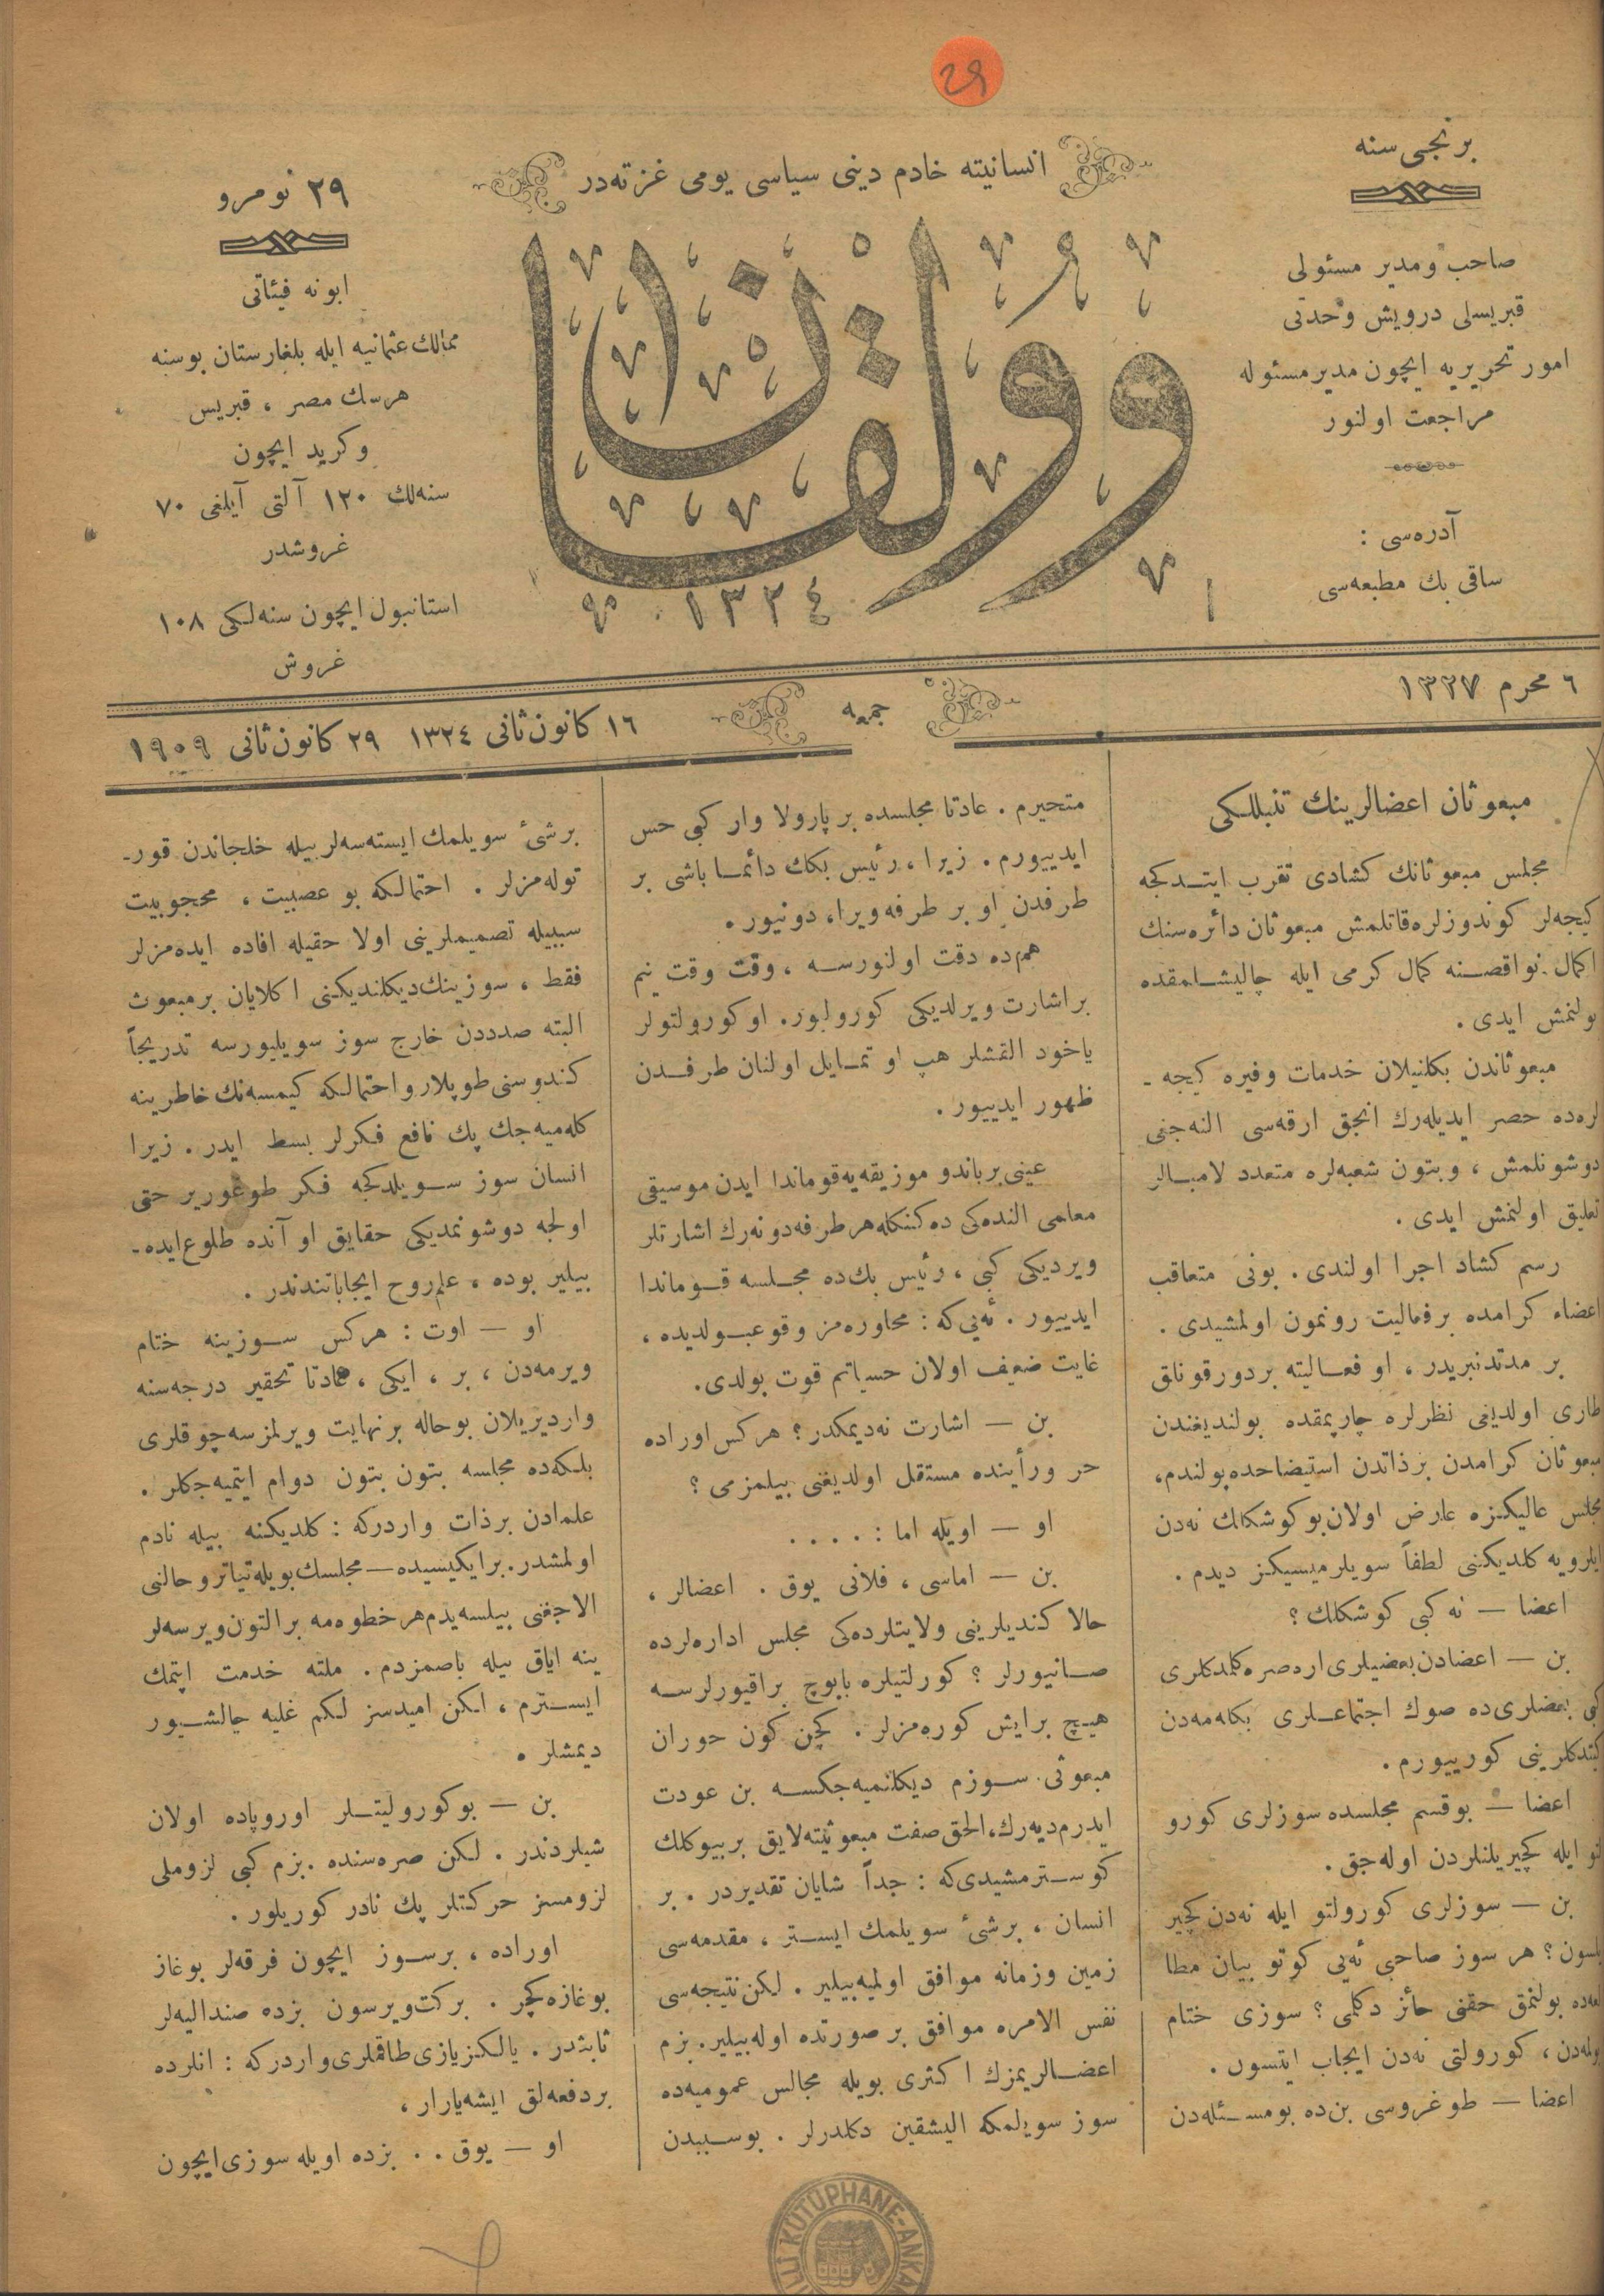 29
برنجی سنه
انسانیته خادم دینی سیاسی یومی غزته‌در
٢٩ نومرو
وولقان
١٣٢٤
صاحب و مدیر مسئولی
قبریسلی درویش وحدتی
امور تحریریه ایچون مدیر مسئوله
مراجعت اولنور
آدره‌سی :
ساقی بك مطبعه‌سی
ابونه فیئاتی
ممالك عثمانیه ایله بلغارستان بوسنه
هرسك مصر ، قبریس
و كرید ایچون
سنه‌لك ١٢٠ آلتی آیلغی ٧٠
غروشدر
استانبول ایچون سنه‌لكی ١٠٨
غروش
٦ محرم ١٣٢٧
جمعه
١٦ كانون ثانی ١٣٢٤ ٢٩ كانون ثانی ١٩٠٩
مبعوثان اعضالرینك تنبللكی
مجلس مبعوثانك كشادی تقرب ایتــدكجه
كیجه‌لر كوندوزلره قاتلمش مبعوثان دائره‌سنك
اكمال نواقصــنه كمال كرمی ایله چالیشــامقده
بولنمش ایدی .
مبعوثاندن بكلنیلان خدمات وفیره كیجه ـ
لره‌ده حصر ایدیله‌رك انجق ارقه‌سی النه‌جغی
دوشونلمش ، و بتون شعبه‌لره متعدد لامبــالر
تعلیق اولنمش ایدی .
رسم كشاد اجرا اولندی . بونی متعاقب
اعضاء كرامده برفعالیت رونمون اولمشیدی .
بر مدتدنبریدر ، او فعــالیته بردورقونلق
طاری اولدیغی نظرلره چارپمقده بولندیغندن
مبعوثان كرامدن برذاتدن استیضاحده بولندم ،
مجلس عالیكزه عارض اولان بو كوشكلك نه‌دن
ایلرویه كلدیكنی لطفاً سویلرمیسیكز دیدم .
اعضا — نه كبی كوشكلك ؟
بن — اعضادن بعضیلری اردصره كلمدكلری
كبی بعضلری‌ده صوك اجتماعــلری بكله‌مه‌دن
كیتدكلرینی كورییورم .
اعضا — بوقسم مجلسده سوزلری كورو
لتو ایله كچیریلنلردن اوله‌جق .
بن — سوزلری كورولتو ایله نه‌دن كچیر
یلسون ؟ هر سوز صاحبی ئه‌یی كوتو بیان مطا
لعه‌ده بولنمق حقنی حائز دكلمی ؟ سوزی ختام
بولمه‌دن ، كورولتی نه‌دن ایجاب ایتسون .
اعضا — طوغروسی بن‌ده بومســئله‌دن
متحیرم . عادتا مجلسده بر پارولا وار كبی حس
ایدییورم . زیرا ، رئیس بكك دائمــا باشی بر
طرفدن او بر طرفه ویرا ، دونیور .
هم‌ده دقت اولنورســه ، وقت وقت نیم
براشارت ویرلدیكی كورولیور . او كورولتولر
یاخود القشلر هپ او تمــایل اولنان طرفــدن
ظهور ایدییور .
عینی برباندو موزیقه‌یه قوماندا ایدن موسیقی
معلمی النده‌كی ده‌كنكله هر طرفه دونه‌رك اشارتلر
ویردیكی كبی ، رئیس بك‌ده مجــلسه قــوماندا
ایدییور . ئه‌یی كه : محاوره‌مز وقوعبــولدیده ،
غایت ضعیف اولان حسیاتم قوت بولدی .
بن — اشارت نه‌دیمكدر ؟ هركس اوراده
حر ورأینده مستقل اولدیغنی بیلمزمی ؟
او — اویله اما : . . . .
بن — اماسی ، فلانی یوق . اعضالر ،
حالا كندیلرینی ولایتلرده‌كی مجلس اداره‌لرده
صــانیورلر ؟ كورلتیلره پاپوچ براقیورلرســه
هیـچ برایش كوره‌مزلر . كچن كون حوران
مبعوثی سـوزم دیكلنمیه‌جكســه بن عودت
ایدرم دیه‌رك ، الحق صفت مبعوثیته لایق بر بیوكلك
كوســترمشیدی‌كه : جداً شایان تقدیردر . بر
انسان ، برشیء سویلمك ایســتر ، مقدمه‌سی
زمین وزمانه موافق اولمیه‌بیلیر . لكن نتیجه‌سی
نفس الامره موافق بر صورتده اوله‌بیلیر . بزم
اعضــالریمزك اكثری بویله مجالس عمومیه‌ده
سوز سویلمكه الیشقین دكلدرلر . بوسـببدن
برشیء سویلمك ایسته‌سه‌لر بیله خلجاندن قورـ
توله‌مزلر . احتمالكه بو عصبیت ، محجوبیت
سببیله تصمیملرینی اولا حقیله افاده ایده‌مزلر
فقط ، سوزینك دیكلندیكنی اكلایان برمبعوث
البته صدددن خارج سوز سویلیورسه تدریجاً
كندوسنی طوپلار و احتمالكه كیمسه‌نك خاطرینه
كله‌میه‌جك پك نافع فكرلر بسط ایدر . زیرا
انسان سوز ســویلدكجه فكر طوغوریر حتی
اولجه دوشونمدیكی حقایق او آنده طلوع ایده‌ـ
بیلیر بوده ، علم روح ایجاباتندندر .
او — اوت : هركس ســوزینه ختام
ویرمه‌دن ، بر ، ایكی ، عادتا تحقیر درجه‌سنه
واردیریلان بوحاله برنهایت ویرلمزسه چوقلری
بلكه‌ده مجلسه بتون بتون دوام ایتمیه‌جكلر .
علمادن برذات واردركه : كلدیكنه بیله نادم
اولمشدر . برایكیسیده — مجلسك بویله تیاترو حالنی
الاجغنی بیلسه‌یدم هر خطوه‌مه برالتون ویرسه‌لر
ینه ایاق بیله باصمزدم . ملته خدمت ایتمك
ایســترم ، لكن امیدسز لكم غلبه چالشــیور
دیمشلر .
بن — بوكورولیتــلر اوروپاده اولان
شیلردندر . لـكن صره‌سنده . بزم كبی لزوملی
لزومسز حركتلر پك نادر كوریلور .
اوراده ، برســوز ایچون فرقه‌لر بوغاز
بوغازه كچر . بركت ویرسون بزده صندالیه‌لر
ثابتدر . یالكز یازی طاقملری واردركه : انلرده
بردفعه‌لق ایشه یارار ،
او — یوق . . بزده اویله سوزی ایچون
MİLLİ KÜTÜPHANE-ANKARA